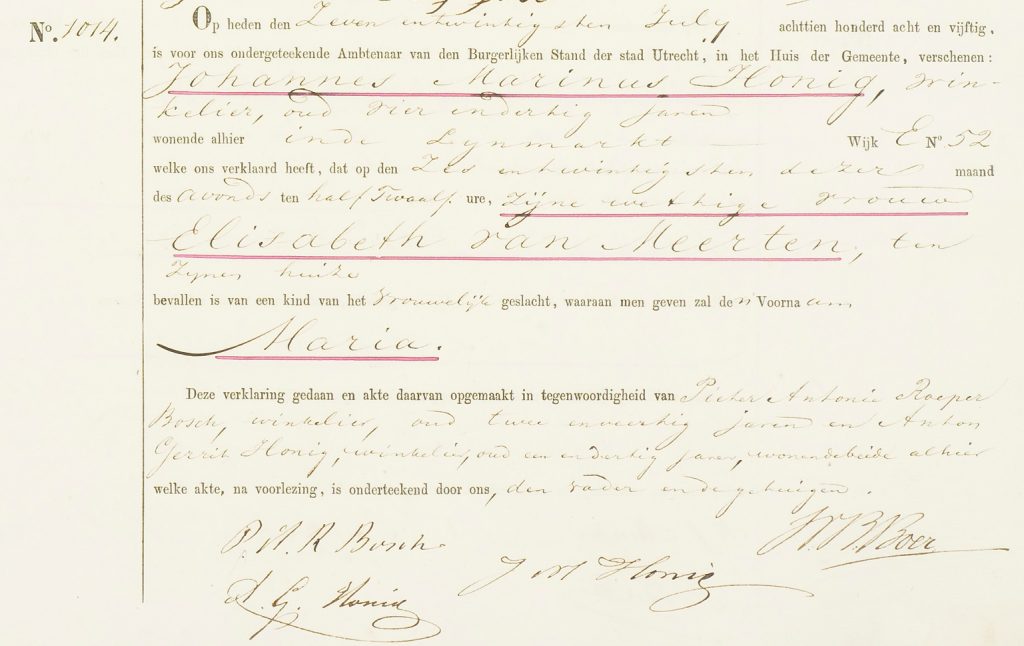 No. 1014.
Op heden den Zeven entwintigsten July achttien honderd acht en vijftig,
is voor ons ondergeteekende Ambtenaar van den Burgerlijken Stand der stad Utrecht, in het Huis der Gemeente, verschenen:
Johannes Marinus Honig, win-
kelier, oud vier endertig jaren
wonende alhier inde Lynmarkt — Wijk E No 52
welke ons verklaard heeft, dat op den Zes entwintigsten dezer maand
des avonds ten half Twaalf ure, zijne wettige vrouw
Elisabeth van Meerten, ten
zynen huize
bevallen is van een kind van het vrouwelijk geslacht, waaraan men geven zal den Voornaam
Maria.
Deze verklaring gedaan en akte daarvan opgemaakt in tegenwoordigheid van Pieter Antonie Roeper
Bosch, winkelier, oud twee enveertig jaren en Anton
Gerrit Honig, winkelier, oud een endertig jaren, wonendebeide alhier
welke akte, na voorlezing, is onderteekend door ons, den vader en de getuigen.
P. A. R Bosch
J M Honig
A. G. Honig
Boer